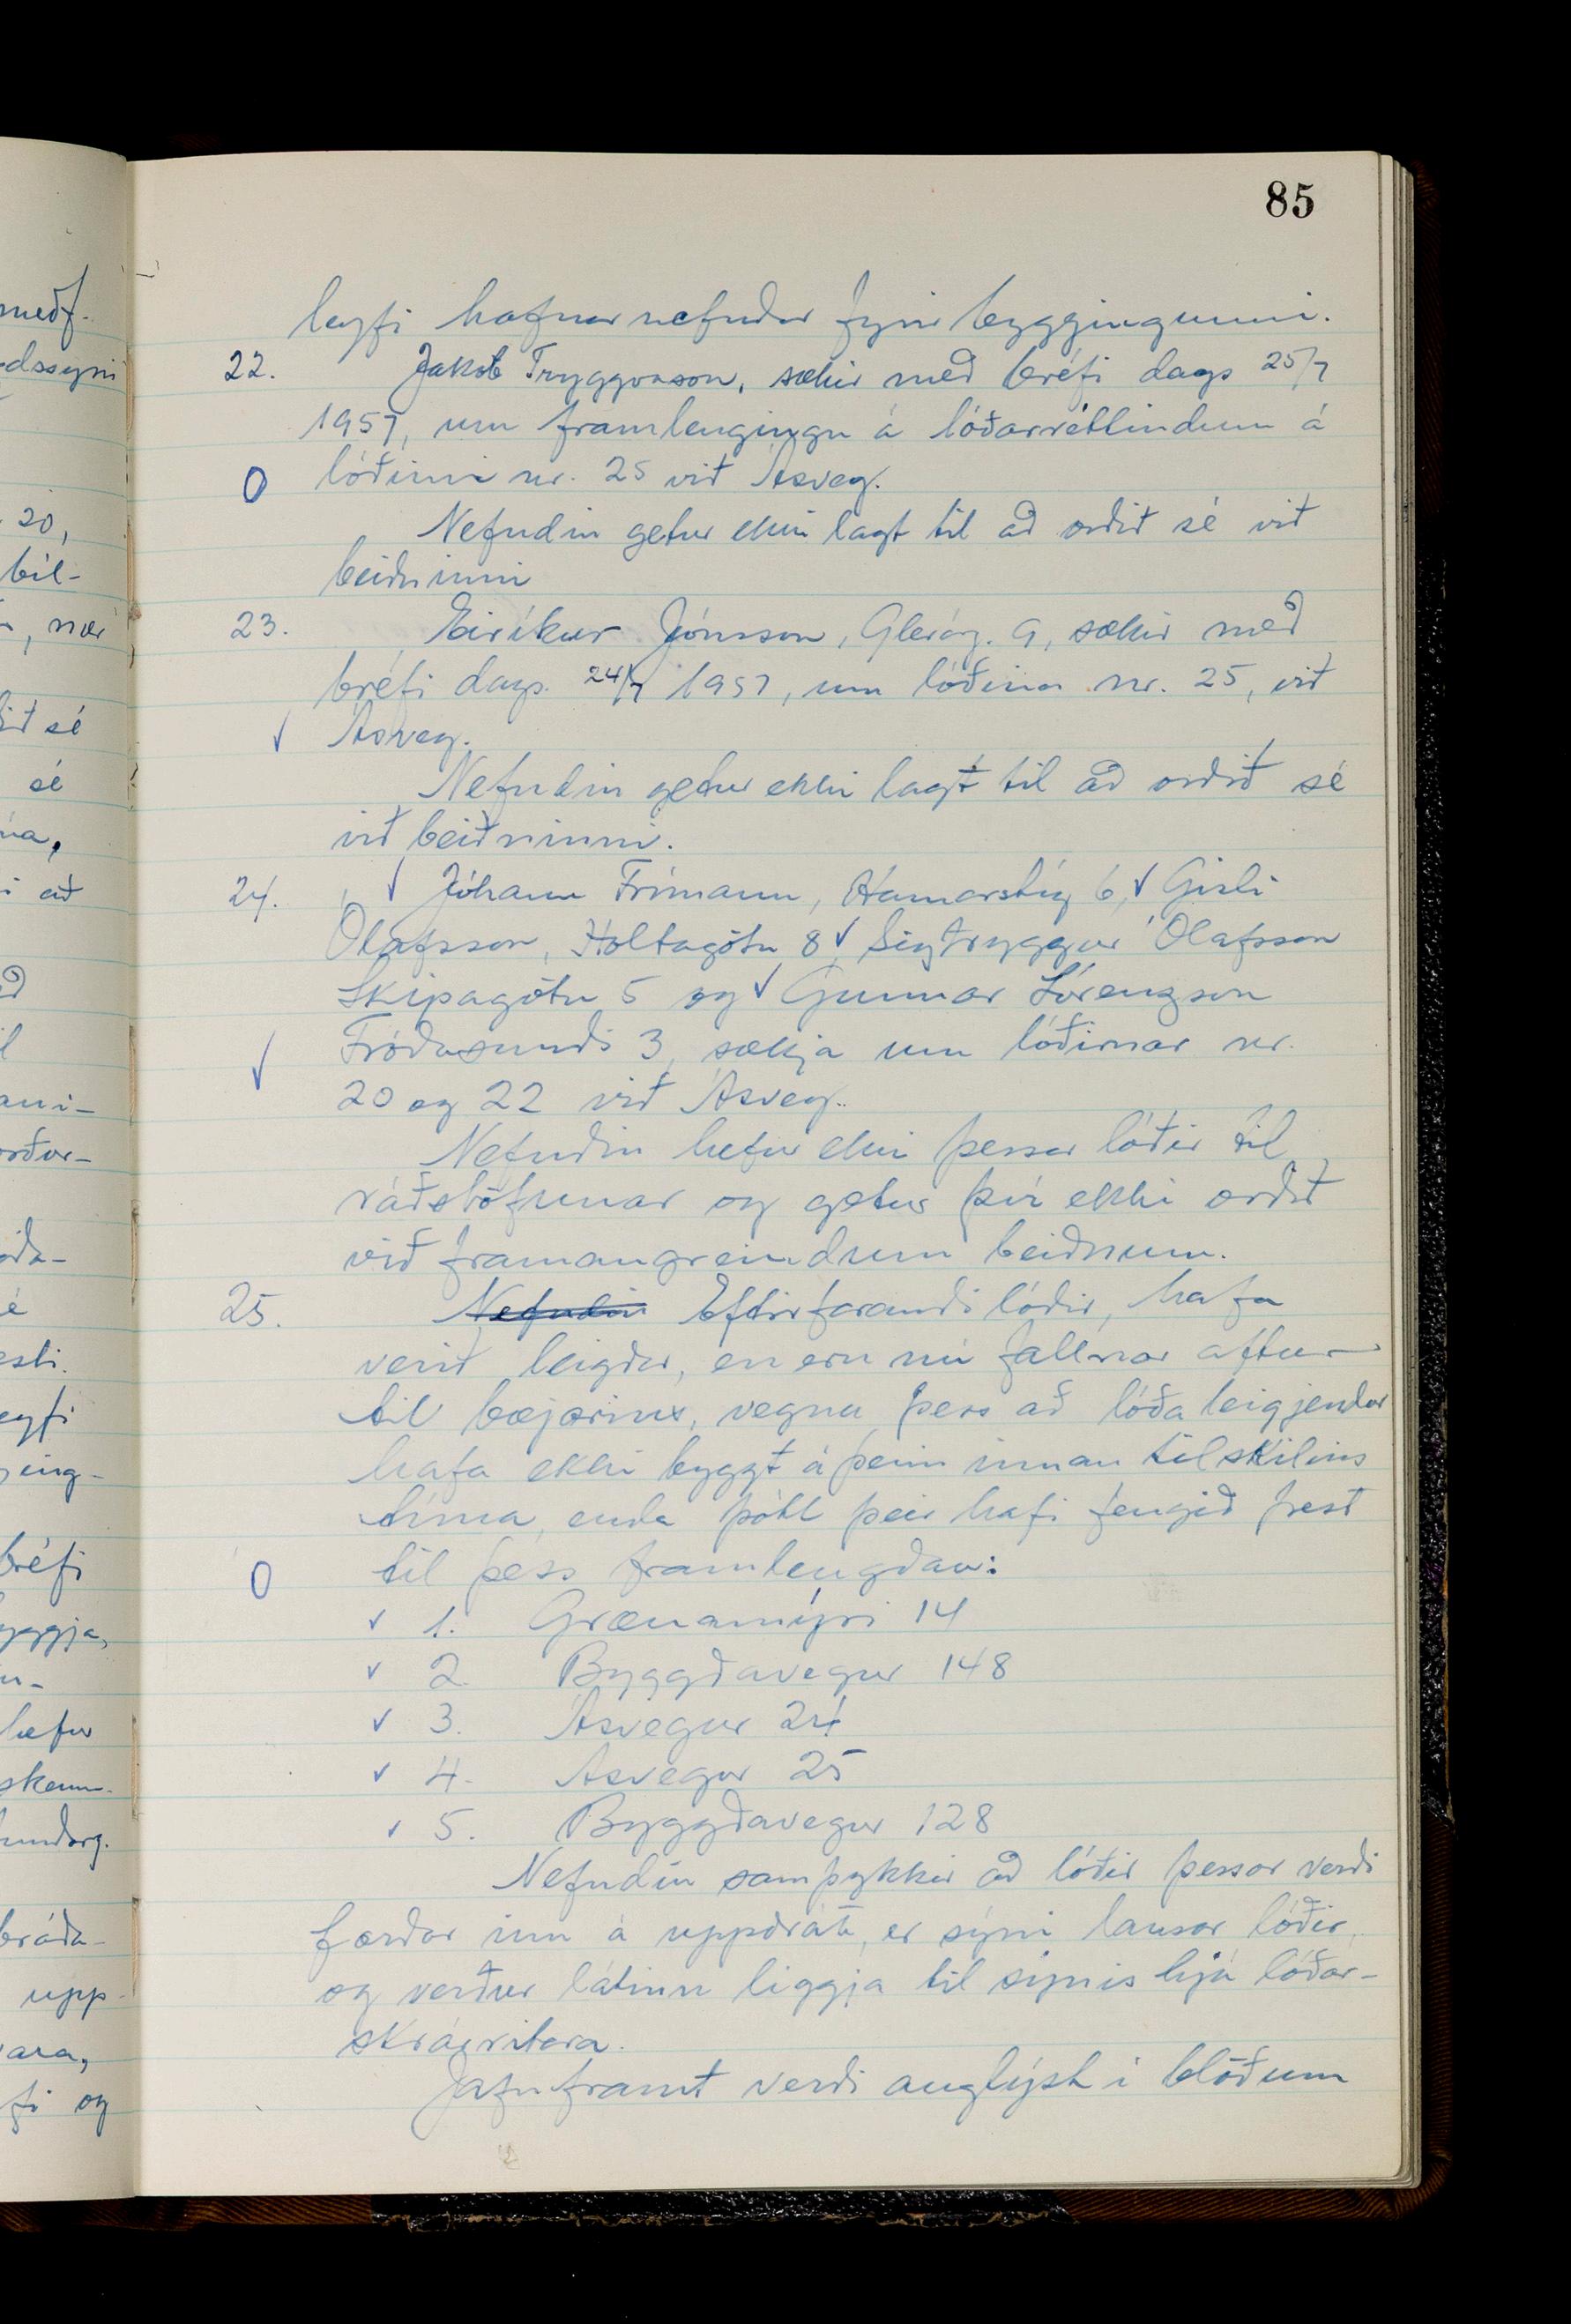 85
leyfi hafnarnefndar fyrir byggingunni.
22. Jakob Tryggvason, sækir með bréfi dags 25/7
1957, um framlengingu á lóðarréttindum á
O lóðinni nr. 25 við Ásveg.
Nefndin getur ekki lagt til að orðið sé við
beiðninni
23. Eiríkur Jónsson, Glerág. 9, sækir með
bréfi dags. 24/7 1957, um lóðina nr. 25, við
✓ Ásveg.
Nefndin getur ekki lagt til að orðið sé
við beiðninni.
24. ✓ Jóhann Frímann, Hamarstíg 6, ✓ Gísli
Ólafsson, Holtagötu 8 ✓, Sigtryggur Ólafsson
Skipagötu 5 og ✓ Gunnar Lórenzson
✓ Fróðasundi 3, sækja um lóðirnar nr.
20 og 22 við Ásveg.
Nefndin hefur ekki þessar lóðir til
ráðstöfunar og getur því ekki orðið
við framangreindum beiðnum.
25. Nefndin Eftirfarandi lóðir, hafa
verið leigðar, en eru nú fallnar aftur
til bæjarins, vegna þess að lóðaleigjendur
hafa ekki byggt á þeim innan tilskilins
tíma, enda þótt þeir hafi fengið frest
O til þess framlengdan:
✓ 1. Grænamýri 14
✓ 2. Byggðavegur 148
✓ 3. Ásvegur 24
✓ 4. Ásvegur 25
✓ 5. Byggðavegur 128
Nefndin samþykkir að lóðir þessar verði
færðar inn á uppdrátt, er sýni lausar lóðir,
og verður látinn liggja til sýnis hjá lóðar-
skrárritara.
Jafnframt verði auglýst í blöðum